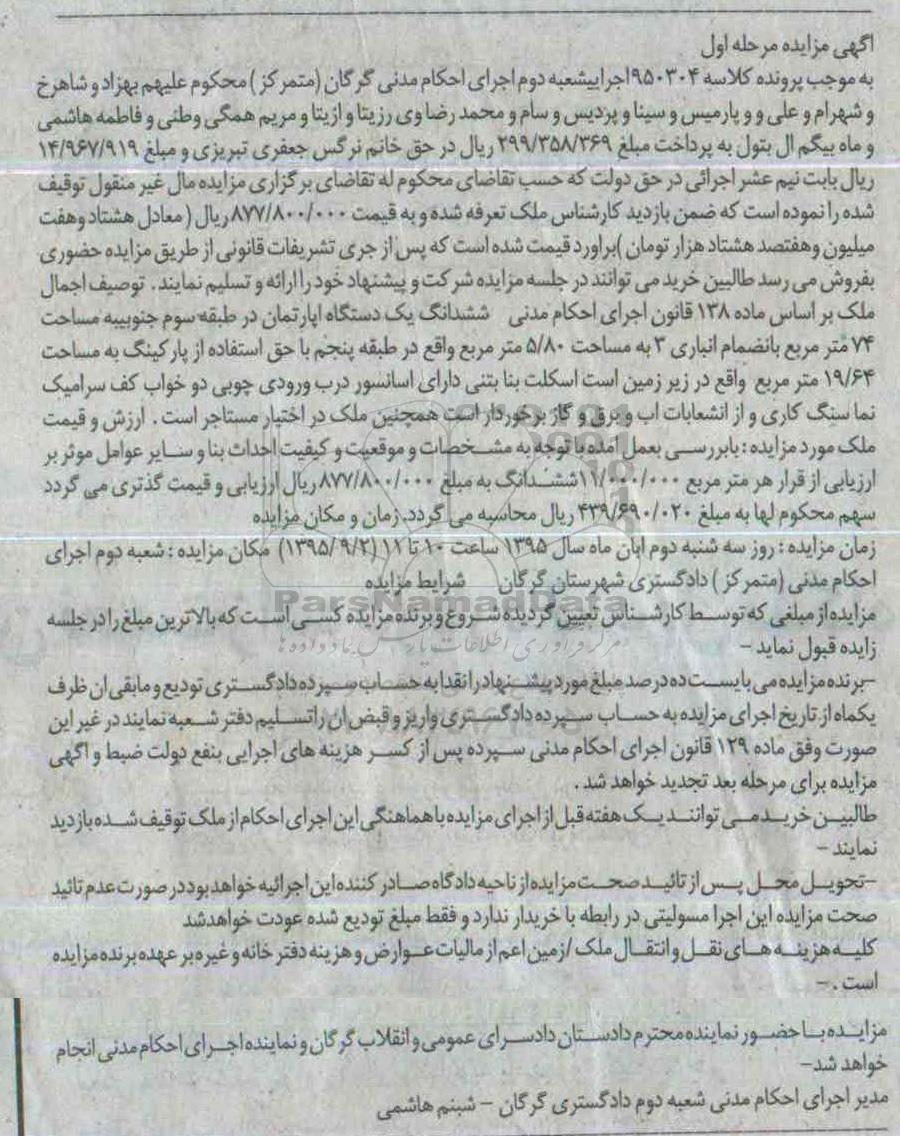 اگهی مزایده مرحله اول
به موجب پرونده کلاسه ۹۵۰۳۰۴اجراییشعبه دوم اجرای احکام مدنی گرگان (متمرکز ) محکوم علیهم بهزاد و شاهرخ
و شهرام و علی و و پارمیس و سینا و پردیس و سام و محمد رضا وی رزیتا و ازیتا و مریم همگی وطنی و فاطمه هاشمی
و ماه بیگم ال بتول به پرداخت مبلغ ۲۹۹/۳۵۸/۳۶۹ ریال در حق خانم نرگس جعفری تبریزی و مبلغ ۱۴/۹۶۷/۹۱۹
ریال بابت نیم عشر اجرائی در حق دولت که حسب تقاضای محکوم له تقاضای برگزاری مزایده مال غیر منقول توقیف
شده را نموده است که ضمن بازدید کارشناس ملک تعرفه شده و به قیمت ۸۷۷/۸۰۰/۰۰۰ ریال ( معادل هشتاد وهفت
میلیون وهفتصد هشتاد هزار تومان )براورد قیمت شده است که پس از جری تشریفات قانونی از طریق مزایده حضوری
بفروش می رسد طالبین خرید می توانند در جلسه مزایده شرکت و پیشنهاد خود را ارائه و تسلیم نمایند . توصیف اجمال
ملک بر اساس ماده ۱۳۸ قانون اجرای احکام مدنی ششدانگ یک دستگاه اپارتمان در طبقه سوم جنوبیبه مساحت
۷۴ متر مربع بانضمام انباری ۳ به مساحت ۵/۸۰ متر مربع واقع در طبقه پنجم با حق استفاده از پارکینگ به مساحت
۱۹/۶۴ متر مربع واقع در زیر زمین است اسکلت بنا بتنی دارای اسانسور درب ورودی چوبی دو خواب کف سرامیک
نما سنگ کاری و از انشعابات اب و برق و گاز برخوردار است همچنین ملک در اختیار مستاجر است . ارزش و قیمت
ملک مورد مزایده : بابررسی بعمل امده با توجه به مشخصات و موقعیت و کیفیت احداث بنا و سایر عوامل موثر بر
ارزیابی از قرار هر متر مربع ۱۱/۰۰۰/۰۰۰ششدانگ به مبلغ ۸۷۷/۸۰۰/۰۰۰ ریال ارزیابی و قیمت گذتری می گردد
سهم محکوم لها به مبلغ ۴۳۹/۶۹۰/۰۲۰ ریال محاسبه می گردد. زمان و مکان مزایده
زمان مزایده : روز سه شنبه دوم ابان ماه سال ۱۳۹۵ ساعت ۱۰ تا ۱۱ (۱۳۹۵/۹/۲) مکان مزایده : شعبه دوم اجرای
احکام مدنی (متمرکز ) دادگستری شهرستان گرگان شرایط مزایده
مزایده از مبلغی که توسط کارشناس تعیین گردیده شروع و برنده مزایده کسی است که بالاترین مبلغ را در جلسه
زایده قبول نماید –
–برنده مزایده می بایست ده درصد مبلغ مورد پیشنهاد را نقدا به حساب سپرده دادگستری تودیع و مابقی ان ظرف
یکماه از تاریخ اجرای مزایده به حساب سپرده دادگستری واریز و قبض ان را تسلیم دفتر شعبه نمایند در غیر این
صورت وفق ماده ۱۲۹ قانون اجرای احکام مدنی سپرده پس از کسر هزینه های اجرایی بنفع دولت ضبط و اگهی
مزایده برای مرحله بعد تجدید خواهد شد .
طالبین خرید می توانند یک هفته قبل از اجرای مزایده با هماهنگی این اجرای احکام از ملک توقیف شده بازدید
نمایند –
–تحویل محل پس از تائید صحت مزایده از ناحیه دادگاه صادر کننده این اجرائیه خواهد بود در صورت عدم تائید
صحت مزایده این اجرا مسولیتی در رابطه با خریدار ندارد و فقط مبلغ تودیع شده عودت خواهدشد
کلیه هزینه های نقل و انتقال ملک /زمین اعم از مالیات عوارض و هزینه دفتر خانه و غیره بر عهده برنده مزایده
است . –
مزایده با حضور نماینده محترم دادستان دادسرای عمومی و انقلاب گرگان و نماینده اجرای احکام مدنی انجام
خواهد شد–
مدیر اجرای احکام مدنی شعبه دوم دادگستری گرگان – شبنم هاشمی
ParsNamadData